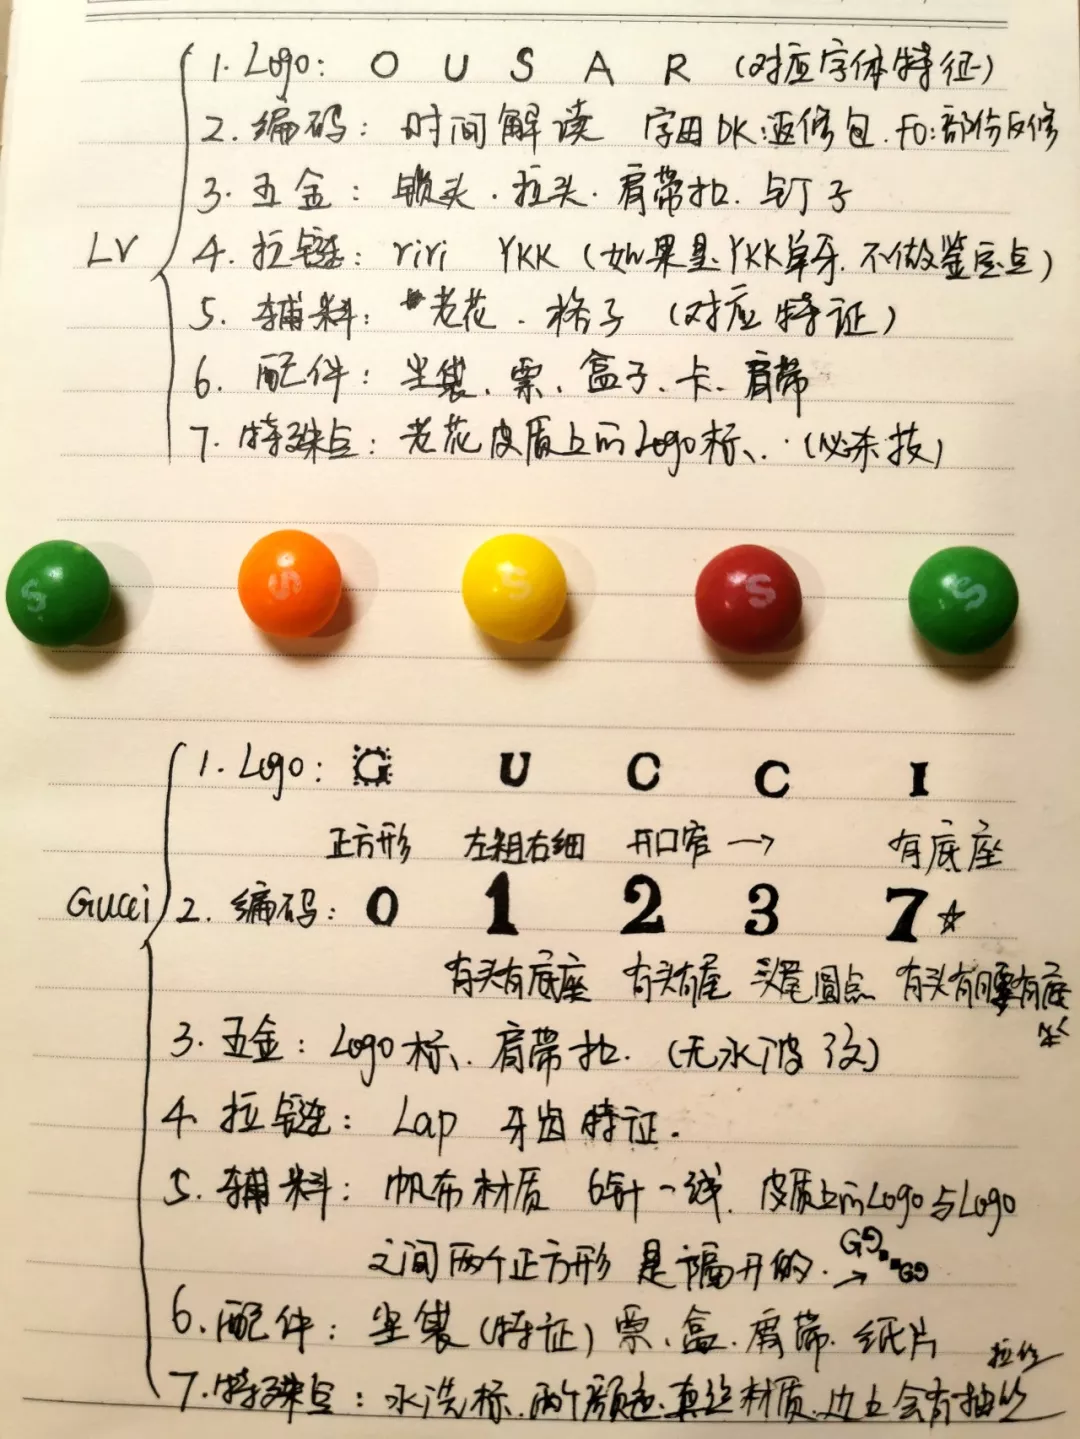 LV
1. Logo: O U S A R (对应字体特征)
2. 编码: 时间解读 字母DK:返修包. FO:部份反修
3. 五金: 锁头. 拉头. 肩带扣. 钉子
4. 拉链: riri YKK (如果是YKK单牙. 不做鉴定点)
5. 辅料: 老花. 格子 (对应特证)
6. 配件: 尘袋、票、盒子、卡、肩带
7. 特殊点: 老花皮质上的Logo标、. (必杀技)
S S S S S
Gucci
1. Logo: G U C C I
正方形 左粗右细 开口窄 → 有底座
2. 编码: 0 1 2 3 7☆
有头有底座 有头有尾 头尾圆点 有头有腰有底坐
3. 五金: Logo标、肩带扣. (无水波纹)
4. 拉链: Lap 牙齿特证.
5. 辅料: 帆布材质 6针一线. 皮质上的Logo与Logo
之间两个正方形 是隔开的. → GG GG
6. 配件: 尘袋(特征)票、盒. 肩带. 纸片
拉丝
7. 特殊点: 水洗标. 两个颜色. 真丝材质. 边上会有抽丝